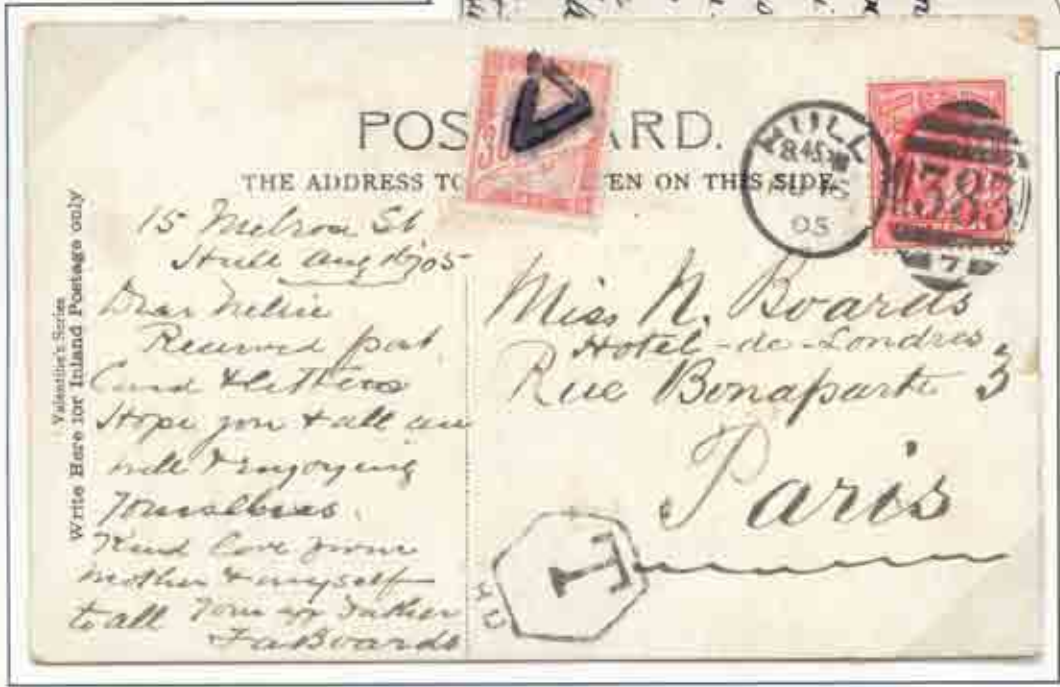 POS ARD.
THE ADDRESS TO EN ON THIS SIDE.
Valentine's Series
Write Here for Inland Postage only
30
HULL
8.45
05
383
7
15 Melrose St
Hull Aug 05
Dear Nellie
Received post
Card & letters
Hope you & all are
well & enjoying
yourselves.
Kind love from
mother & myself
to all Your Father
Boards
Miss N. Boards
Hotel-de-Londres
Rue Bonaparte 3
Paris
T